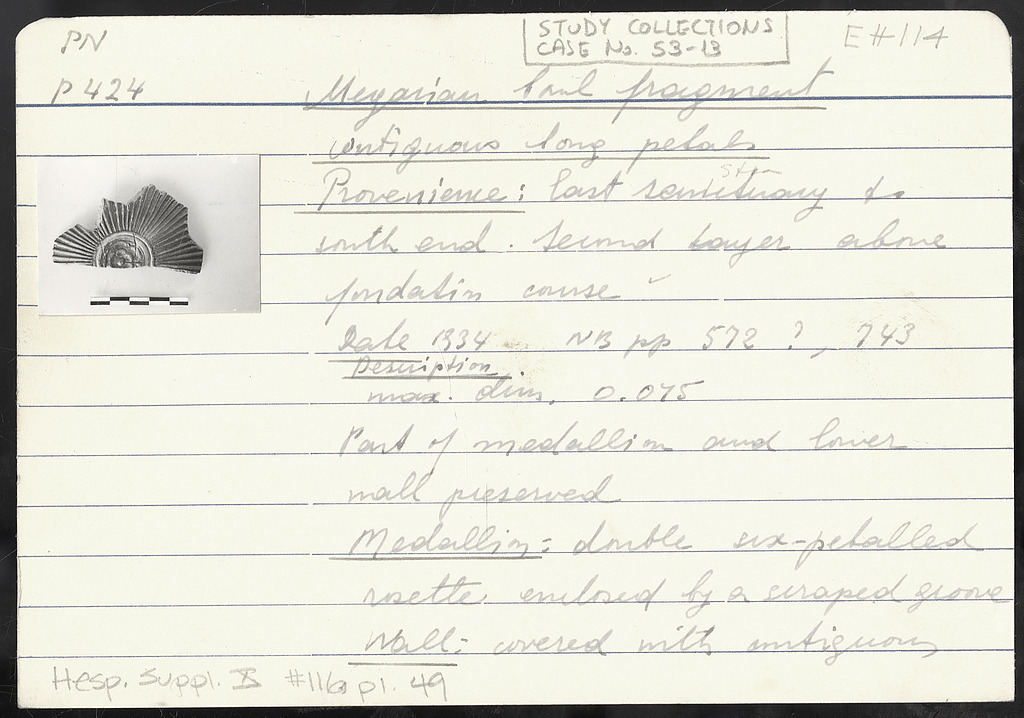 PN
STUDY COLLECTIONS
CASE No. 53-13
E#114
P 424
Megarian bowl fragment
contiguous long petals
Provenience: East sanctuary to
Stoa
south end. Second layer above
fondatin course
Date 1934 NB pp 572 ?, 743
Description
max. dim. 0.075
Part of medallion and lower
wall preserved
Medallion: double six-petalled
rosette enclosed by a scraped groove
Wall: covered with contiguous
Hesp. Suppl. X #116 pl. 49